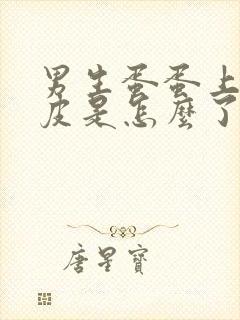 男生蛋蛋上
皮是怎麼了
唐星寶